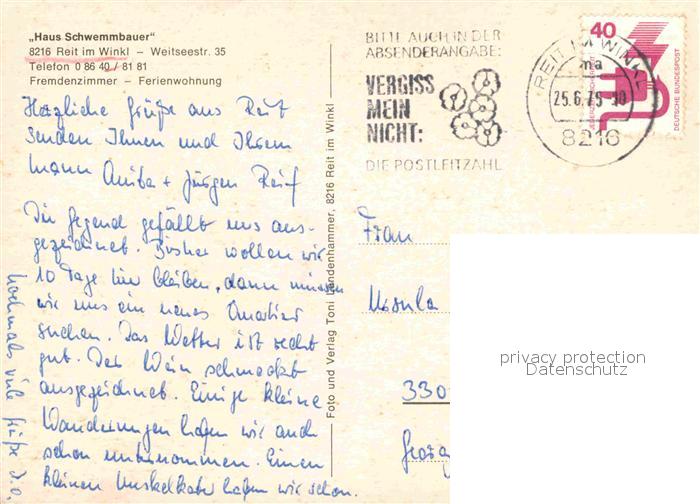 „Haus Schwemmbauer"
8216 Reit im Winkl – Weitseestr. 35
Telefon 0 86 40 / 81 81
Fremdenzimmer – Ferienwohnung
Herzliche Grüße aus Reit
senden Ihnen und Ihrem
Mann Anita + Jürgen Reif
Die Gegend gefällt uns aus-
gezeichnet. Bisher wollen wir
10 Tage hier bleiben, dann müssen
wir uns ein neues Quartier
suchen. Das Wetter ist recht
gut. Der Wein schmeckt
ausgezeichnet. Einige kleine
Wanderungen haben wir auch
schon unternommen. Einen
kleinen Muskelkater haben wir schon.
nochmals viele Grüße d.o.
Foto und Verlag Toni Lindenhammer, 8216 Reit im Winkl
BITTE AUCH IN DER
ABSENDERANGABE:
VERGISS
MEIN
NICHT:
DIE POSTLEITZAHL
REIT IM WINKL
ma
25.6.75-10
8216
40
DEUTSCHE BUNDESPOST
Frau
Ursula
330
Georg
privacy protection
Datenschutz